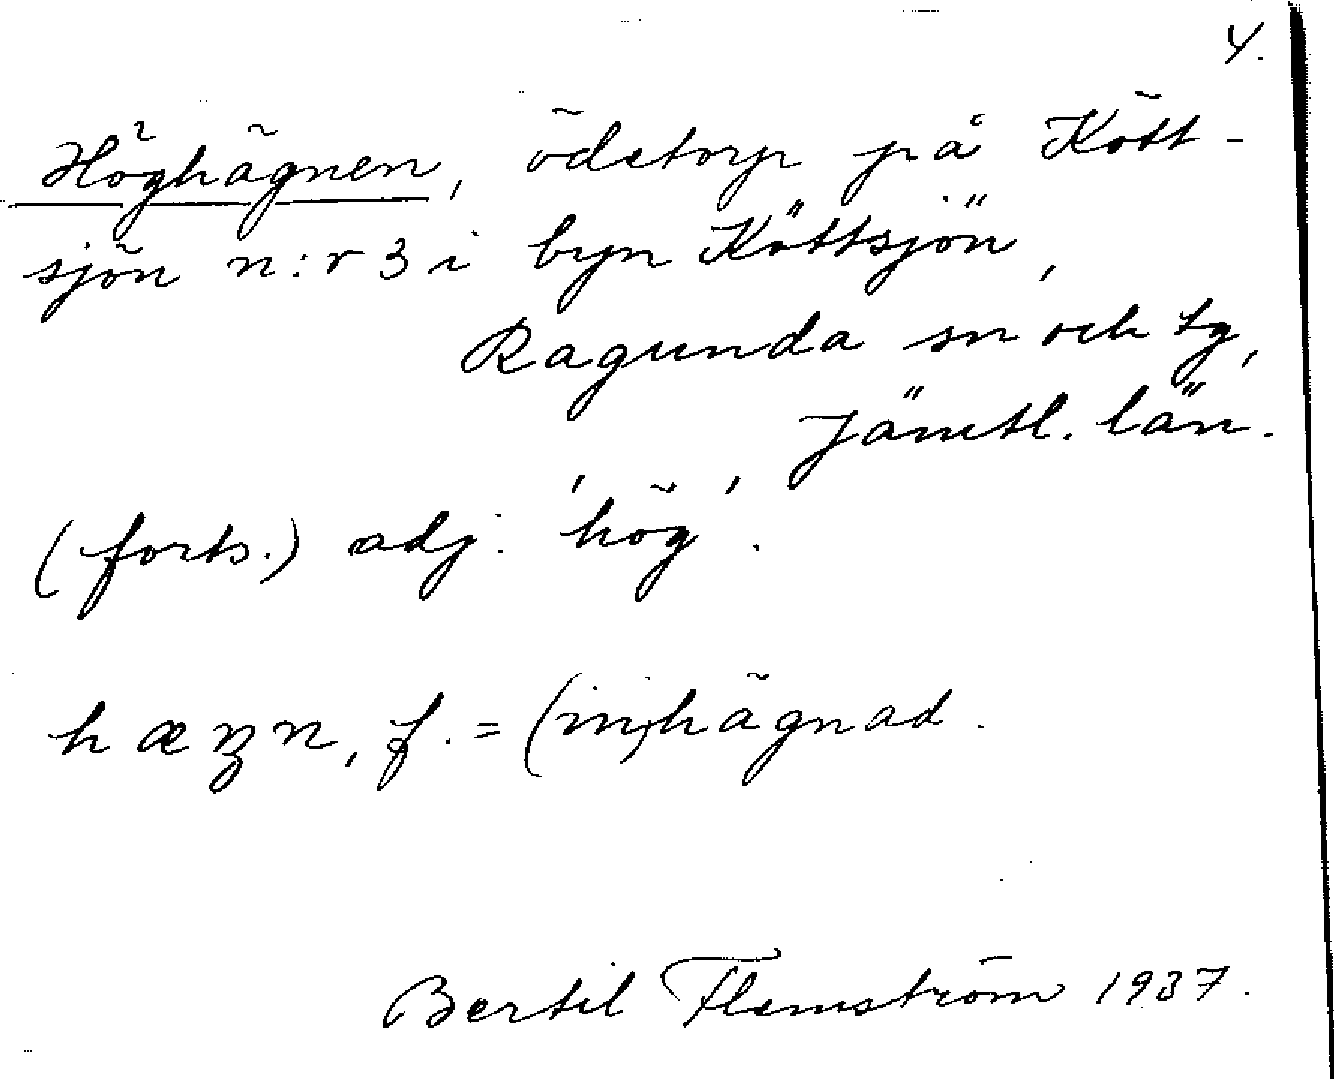 4.
Höghägnen, ödetorp på Kött-
sjön n:r 3 i byn Köttsjön,
Ragunda sn och tg,
Jämtl. län.
(forts.) adj. 'hög'.
hægn, f. = (in)hägnad.
Bertil Flemström 1937.